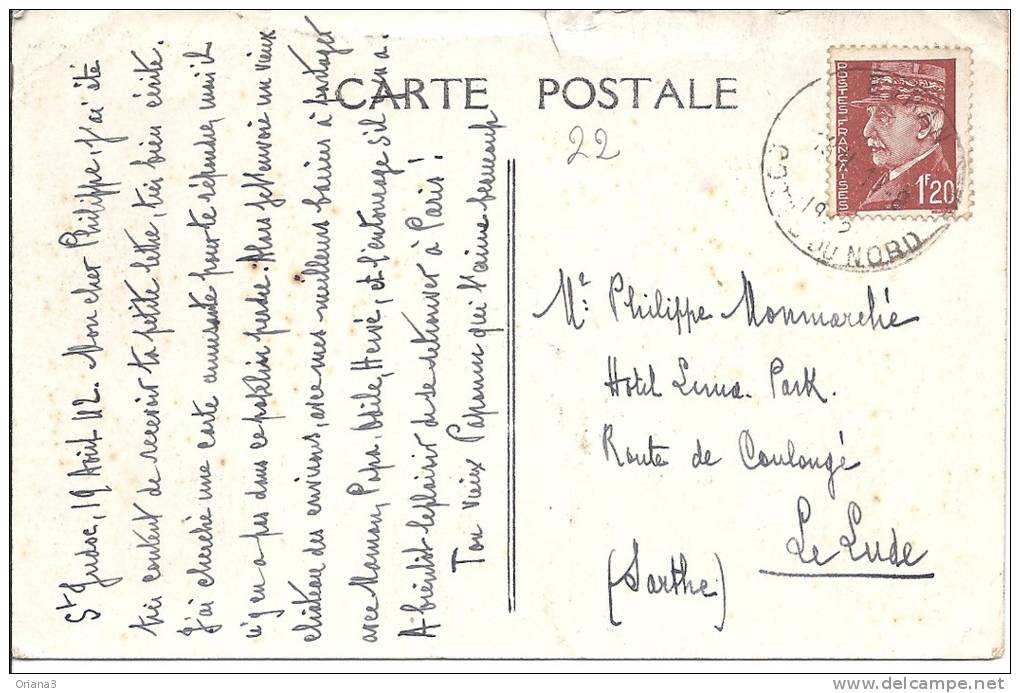 CARTE POSTALE
22
POSTES FRANÇAISES
1F20
DU NORD
St Judoce, 19 Août 42. Mon cher Philippe, j'ai été
très content de recevoir ta petite lettre, très bien écrite.
J'ai cherché une carte amusante pour te répondre, mais il
n'y en a pas dans ce patelin perdu. Alors je t'envoie un vieux
château des environs, avec mes meilleurs baisers à partager
avec Maman, Papa, Odile, Hervé, et l'entourage s'il y en a.
A bientôt le plaisir de se retrouver à Paris !
Ton vieux Papamm qui t'aime beaucoup
Mr. Philippe Monmarché
Hôtel Luna-Park.
Route de Coulongé
Le Lude
(Sarthe)
Oriana3